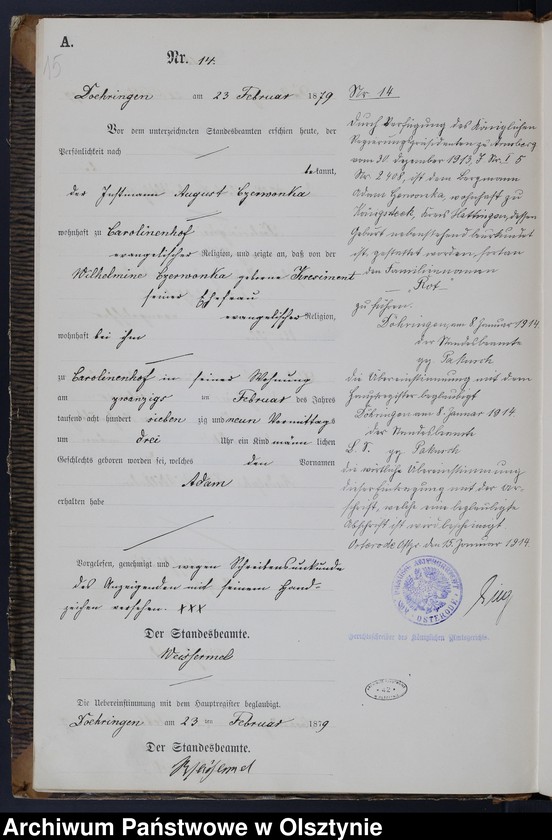 A.
15
Nr. 14.
Doehringen am 23 Februar 1879
Vor dem unterzeichneten Standesbeamten erschien heute, der
Persönlichkeit nach
bekannt,
der Instmann August Czerwonka
wohnhaft zu Carolinenhof
evangelischer Religion, und zeigte an, daß von der
Wilhelmine Czerwonka geborne
seiner Ehefrau
evangelischer Religion,
wohnhaft bei ihm
zu Carolinenhof in seiner Wohnung
am zwanzigs ten Februar des Jahres
tausend acht hundert sieben zig und neun Vormittags
um drei Uhr ein Kind männ lichen
Geschlechts geboren worden sei, welches den Vornamen
Adam
erhalten habe
Vorgelesen, genehmigt und wegen Schreibensunkunde
des Anzeigenden mit seinem Hand-
zeichen versehen. XXX
Der Standesbeamte.
Weissermel
Die Uebereinstimmung mit dem Hauptregister beglaubigt.
Doehringen am 23 ten Februar 1879
Der Standesbeamte.
Weissermel
Nr 14
Durch Verfügung des Königlichen
Regierungspräsidenten zu Arnsberg
vom 30. Dezember 1913, J Nr. I 5
Nr. 2408, ist dem Bergmann
Adam Czerwonka, wohnhaft zu
Kreis Hattingen, dessen
Geburt nebenstehend beurkundet
ist, gestattet worden, fortan
den Familiennamen
"Rot"
zu führen.
Döhringen, am 8 Januar 1914.
der Standesbeamte
gez
die Übereinstimmung mit dem
Hauptregister beglaubigt
Döhringen am 8. Januar 1914
der Standesbeamte
L. S. gez
die wörtliche Übereinstimmung
dieser Eintragung mit der Ur-
schrift, welche eine beglaubigte
Abschrift ist wird bescheinigt
Osterode Ostpr. den 15. Januar 1914.
KÖNIGLICH AMTSGERICHT
OSTERODE
Gerichtsschreiber des Königlichen Amtsgerichts.
Archiwum Państwowe w Olsztynie